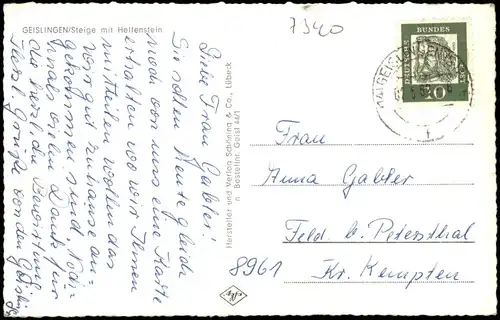 GEISLINGEN/Steige mit Helfenstein
7340
Liebe Frau Gabler!
Sie sollen heute gleich
noch von uns eine Karte
erhalten wo wir Ihnen
mitteilen wollen das
wir gut zuhause an-
gekommen sind. Noch-
mals vielen Dank für
die herzliche Bewirtung
Herzl. Grüße von den
Hersteller und Verlag Schöning & Co., Lübeck
Bestellnr. Geisl 44/1
DEUTSCHE BUNDESPOST
10
GEISLINGEN
Frau
Anna Gabler
Feld b. Petersthal
Kr. Kempten
8961